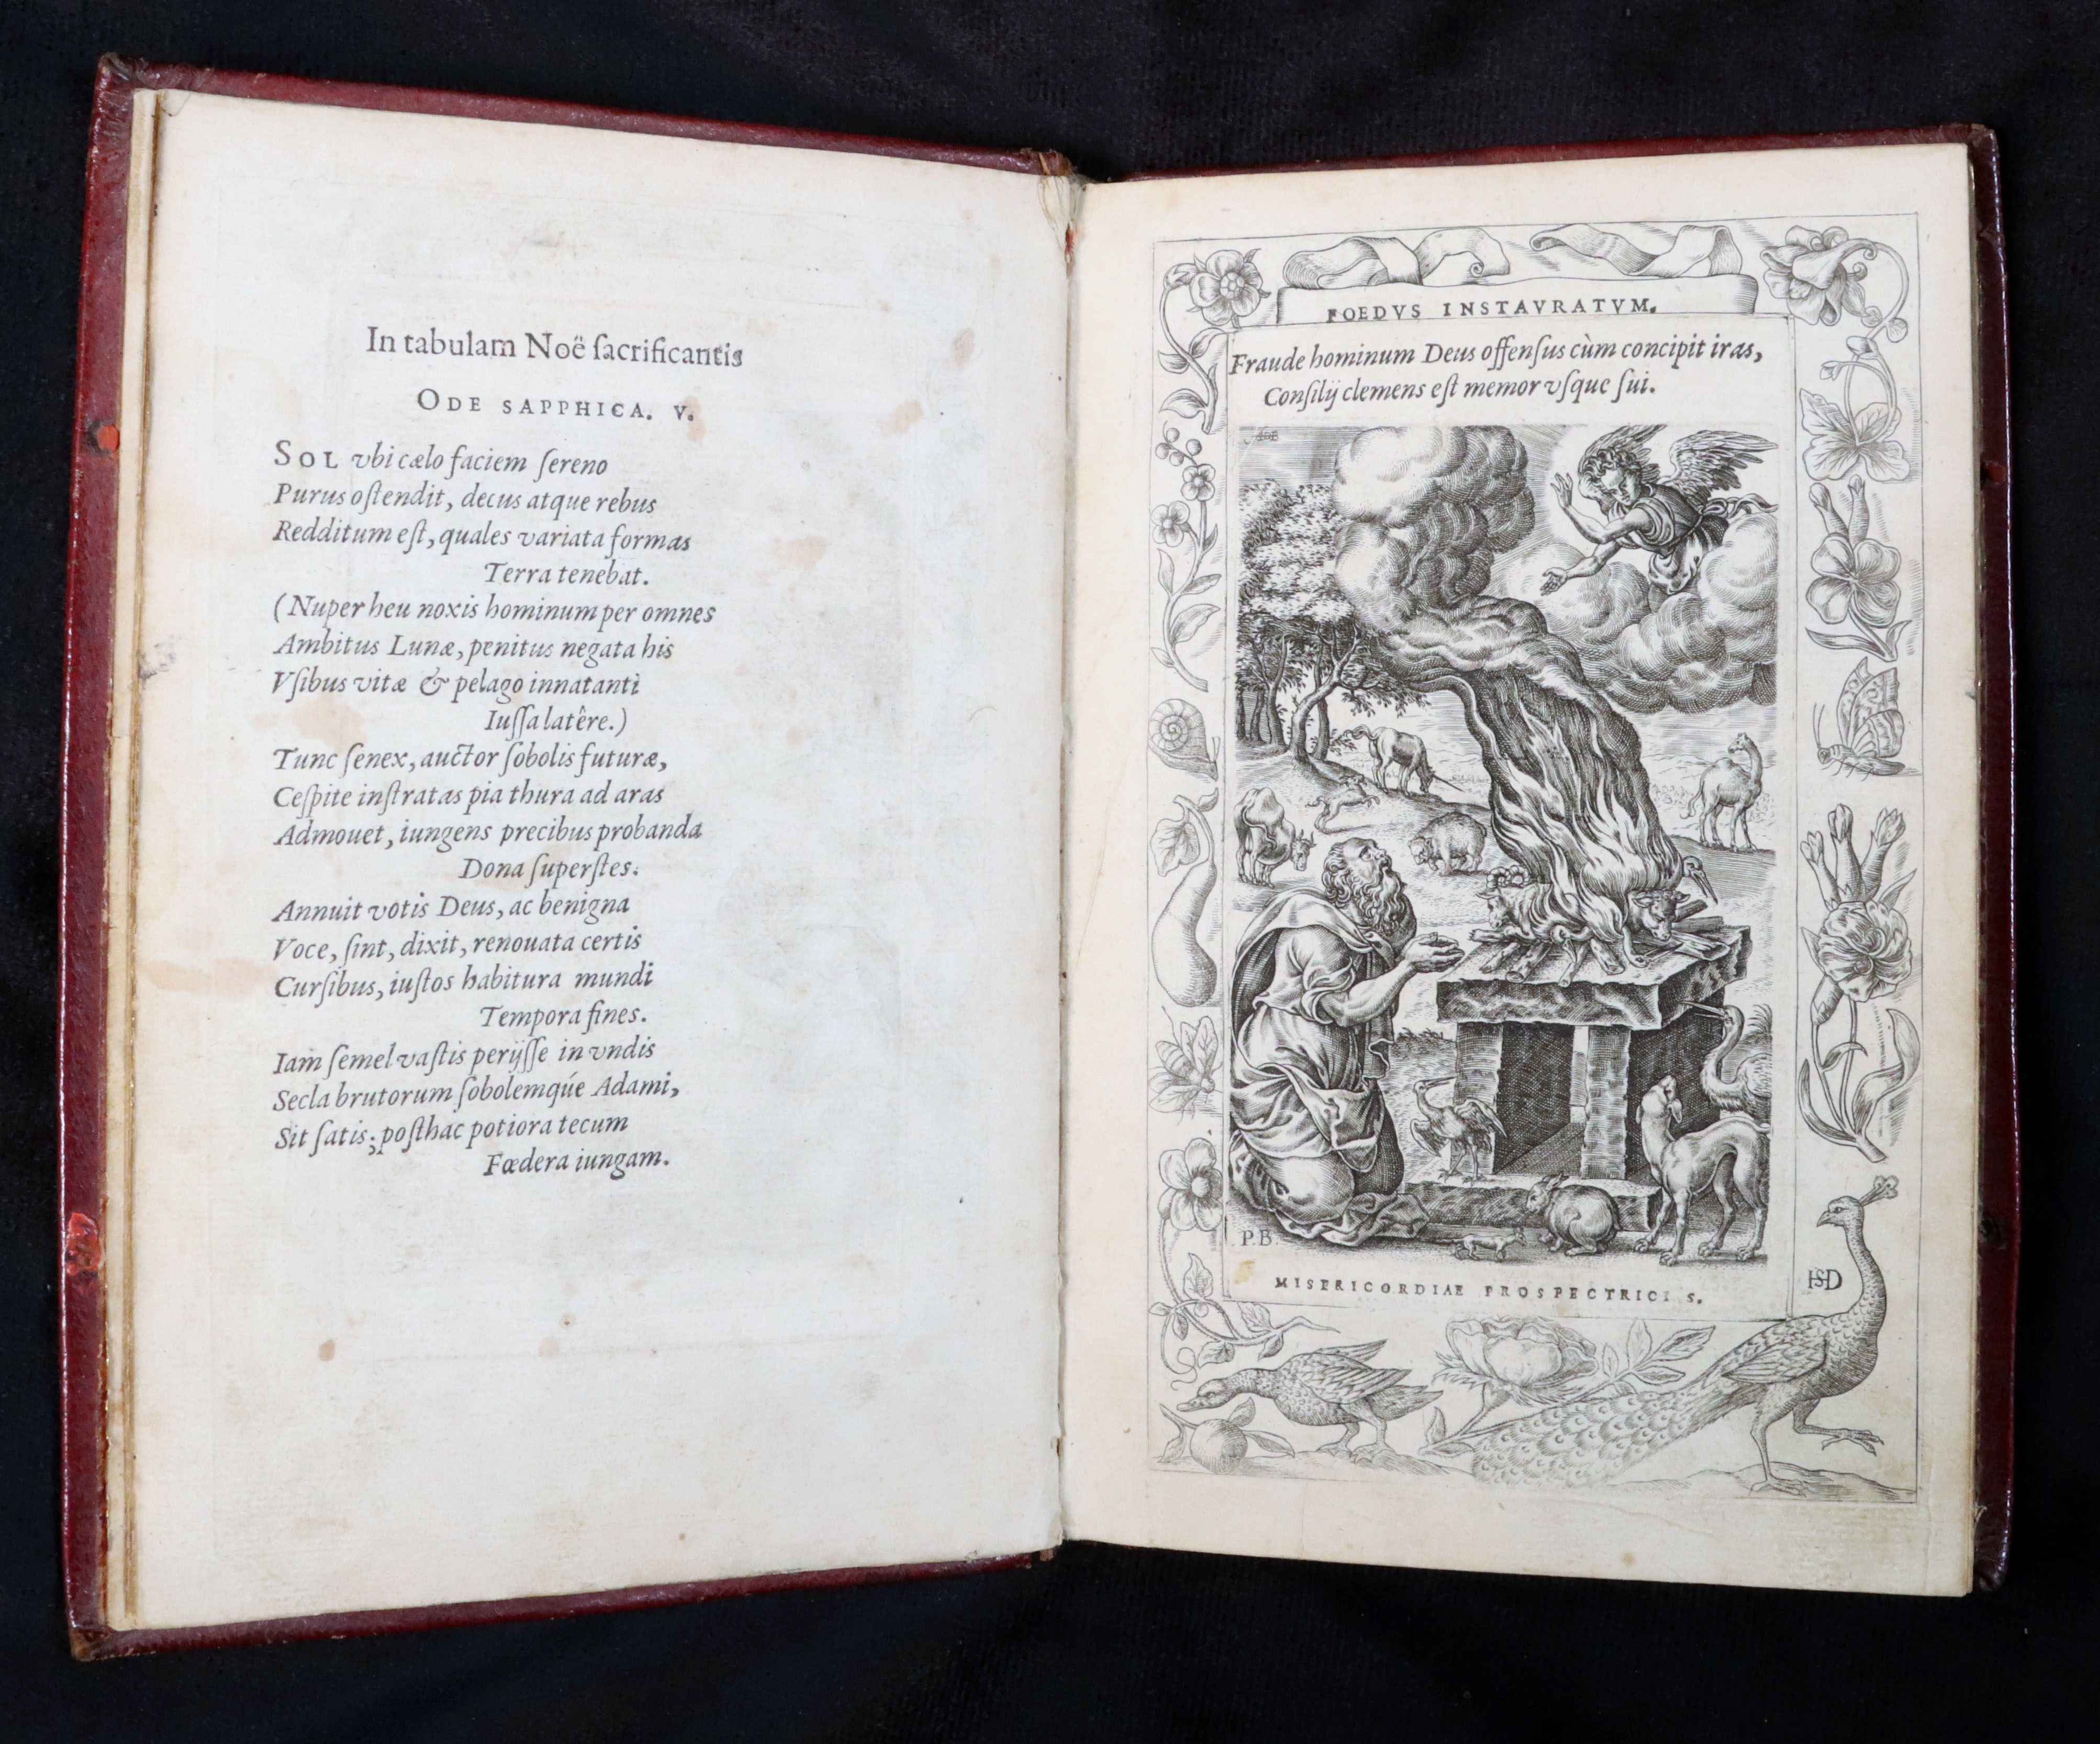 In tabulam Noë ſacrificantis
ODE SAPPHICA. V.
SOL vbi cælo faciem ſereno
Purus oſtendit, decus atque rebus
Redditum eſt, quales variata formas
Terra tenebat.
(Nuper heu noxis hominum per omnes
Ambitus Lunæ, penitus negata his
Vſibus vitæ & pelago innatanti
Iuſſa latêre.)
Tunc ſenex, auctor ſobolis futuræ,
Ceſpite inſtratas pia thura ad aras
Admouet, iungens precibus probanda
Dona ſuperſtes.
Annuit votis Deus, ac benigna
Voce, ſint, dixit, renouata certis
Curſibus, iuſtos habitura mundi
Tempora fines.
Iam ſemel vaſtis perijſſe in vndis
Secla brutorum ſobolemqúe Adami,
Sit ſatis; poſthac potiora tecum
Fœdera iungam.
FOEDVS INSTAVRATVM.
Fraude hominum Deus offenſus cùm concipit iras,
Conſilij clemens eſt memor vſque ſui.
P.B.
MISERICORDIAE PROSPECTRICIS.
HSD